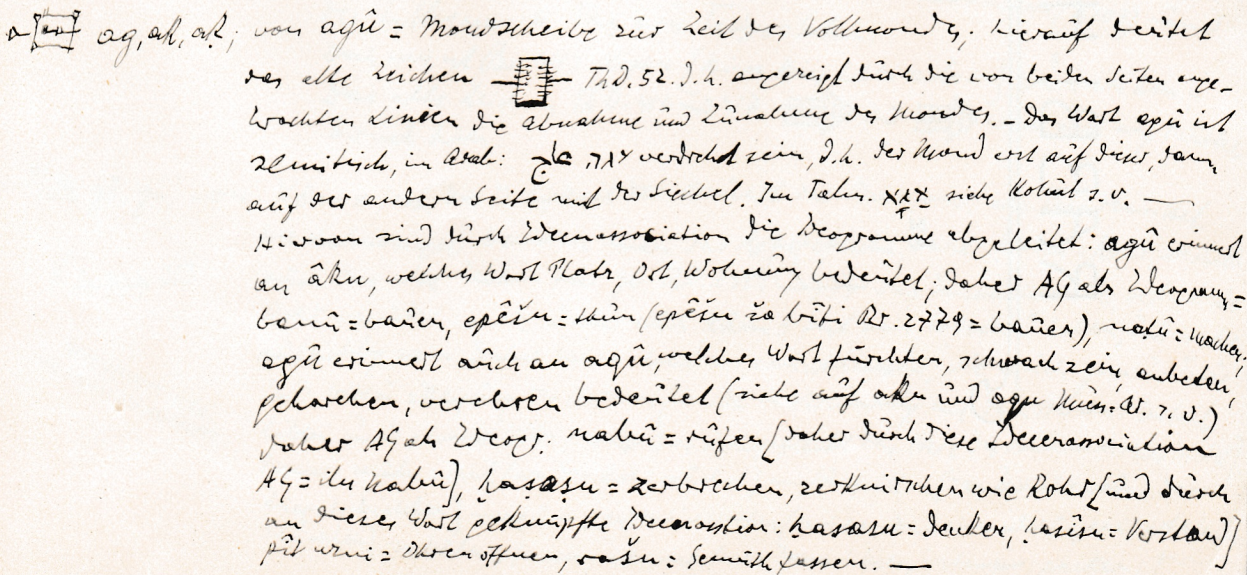 ag, ak, aḳ; von agû = Mondscheibe zur Zeit des Vollmondes; hierauf deutet
das alte Zeichen ThD. 52. d.h. angezeigt durch die von beiden Seiten ange-
brachten Linien die Abnahme und Zunahme des Mondes. – Das Wort agû ist
semitisch, im Arab: عاج יגה verdreht sein, d.h. der Mond erst auf dieser, dann
auf der andern Seite mit der Sichel. Im Talm. siehe Kohut s.v. —
Hiervon sind durch Ideenassociation die Ideogramme abgeleitet: agû erinnert
an âku, welches Wort Platz, Ort, Wohnung bedeutet; daher AG als Ideogramm =
banû = bauen, epêšu = thun (epêšu ša bîti Br. 2779 = bauen), = machen;
agû erinnert auch an agû, welches Wort fürchten, schwach sein, anbeten,
gehorchen, verehren bedeutet (siehe auf aku und agu s.v.)
daher AG als Ideogr. nabû = rufen [daher durch diese Ideenassociation
AG = ilu Nabû], ḫaṣaṣu = zerbrechen, zerknirschen wie Rohr [und durch
an dieses Wort geknüpfte: ḫasasu = denken, ḫasîsu = Verstand]
pît uzni = Ohren öffnen, = Gemüth fassen. —